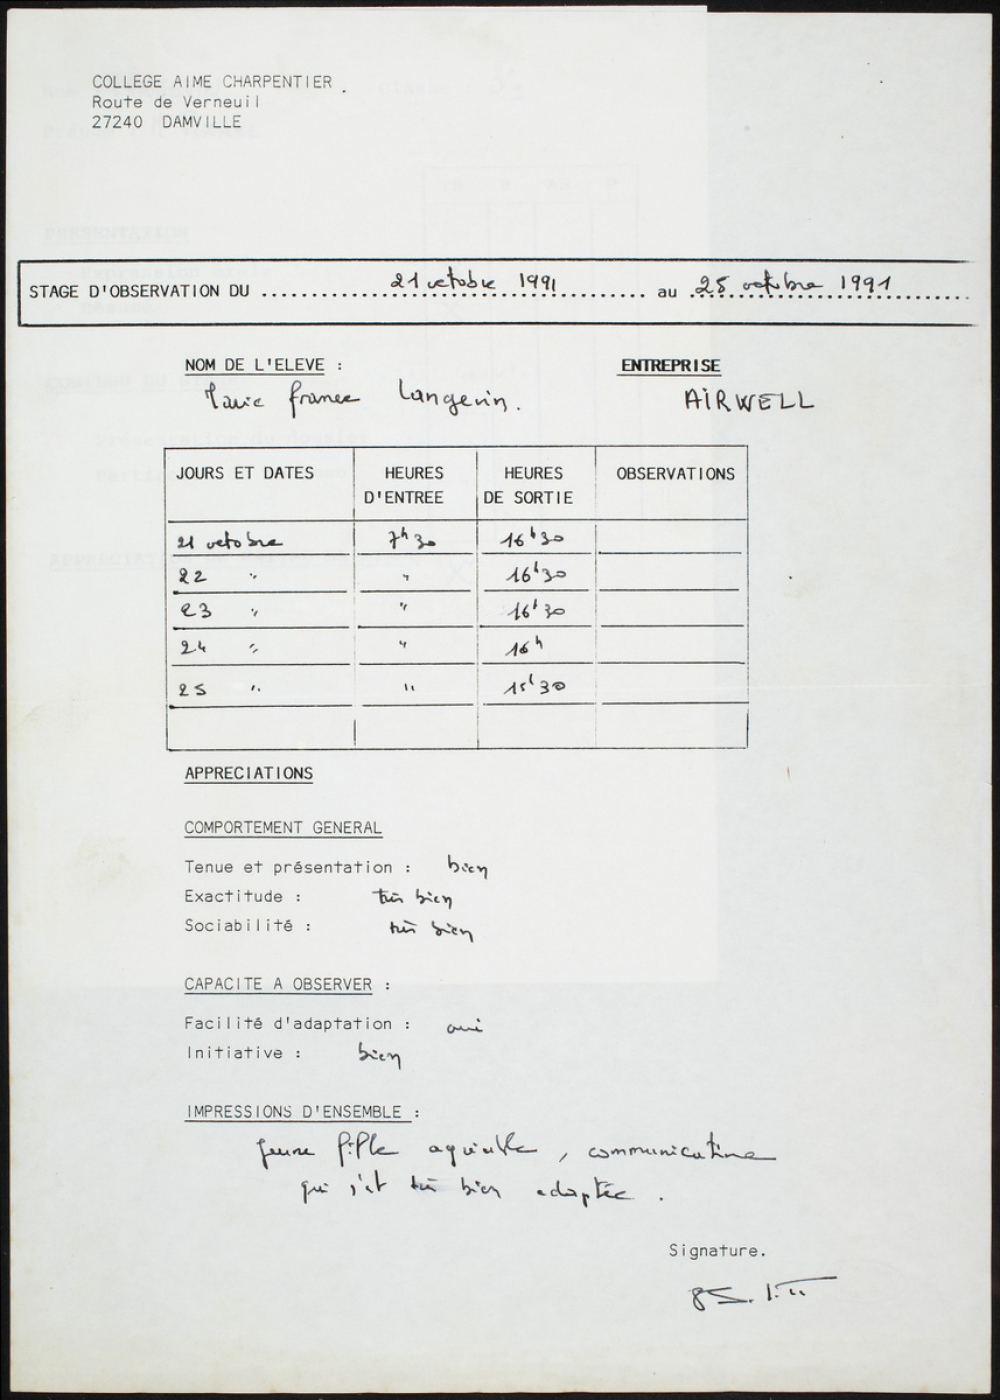 COLLEGE AIME CHARPENTIER
Route de Verneuil
27240 DAMVILLE
STAGE D'OBSERVATION DU 21 octobre 1991 au 25 octobre 1991
NOM DE L'ELEVE : ENTREPRISE
Marie france Langevin. AIRWELL
JOURS ET DATES HEURES D'ENTREE HEURES DE SORTIE OBSERVATIONS
21 octobre 7h30 16h30
22 " " 16h30
23 " " 16h30
24 " " 16h
25 " " 15h30
APPRECIATIONS
COMPORTEMENT GENERAL
Tenue et présentation : bien
Exactitude : très bien
Sociabilité : très bien
CAPACITE A OBSERVER :
Facilité d'adaptation : oui
Initiative : bien
IMPRESSIONS D'ENSEMBLE :
jeune fille agréable, communicative
qui s'est très bien adaptée.
Signature.